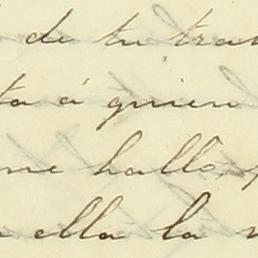 de tu tra
ta á quien
me hallo
ella la